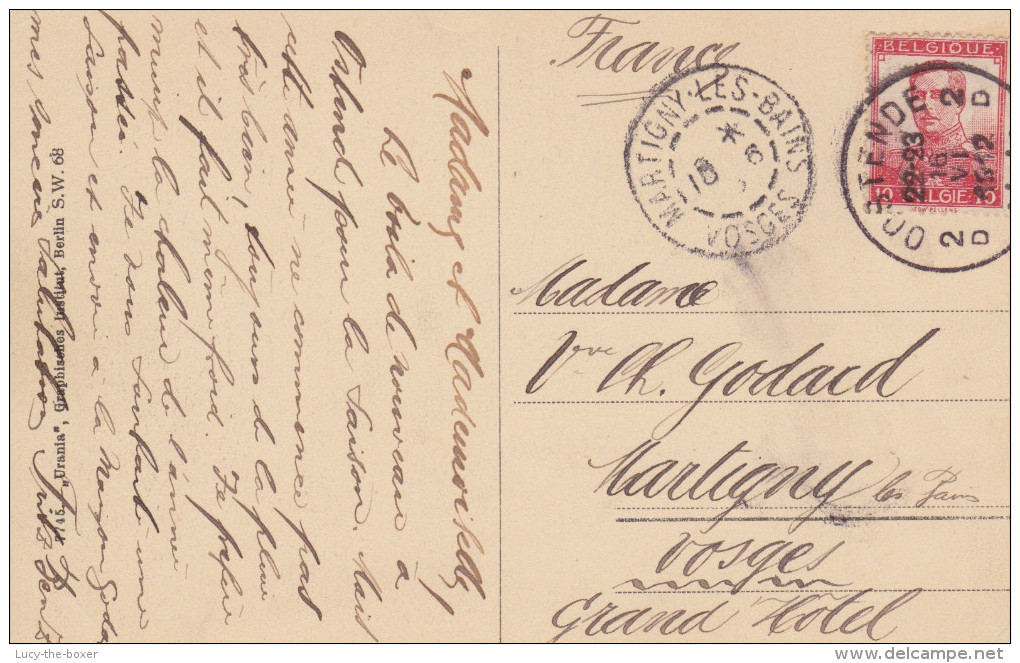 Madame et Mademoiselle
Le voila de nouveau à
Ostende pour la Saison. Mais
cette année ne commence pas
très bien, toujours de la pluie
et il fait même froid. Je préfère
la chaleur de l'année
passée. Je vous souhaite une
Saison et envoi à la
mes
France
MARTIGNY-LES-BAINS
18 * 6
VOSGES
BELGIQUE
10 BELGIE 10
OOSTENDE
2 2
22-23
16
VI
12
D D
Madame
Vve Ch. Godard
Martigny les Bains
Vosges
Grand Hôtel
"Urania", Graphisches Institut, Berlin S.W. 68
Lucy-the-boxer
www.delcampe.net